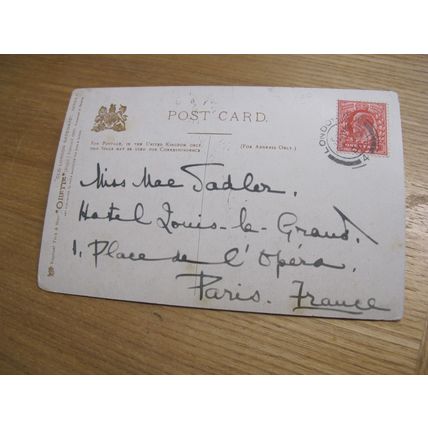 POST CARD.
FOR POSTAGE IN THE UNITED KINGDOM ONLY
THIS SPACE MAY BE USED FOR CORRESPONDENCE
(FOR ADDRESS ONLY.)
LONDON
Miss Mae Sadler,
Hotel Louis-le-Grand,
1, Place de l'Opéra,
Paris. France
"OILETTE"